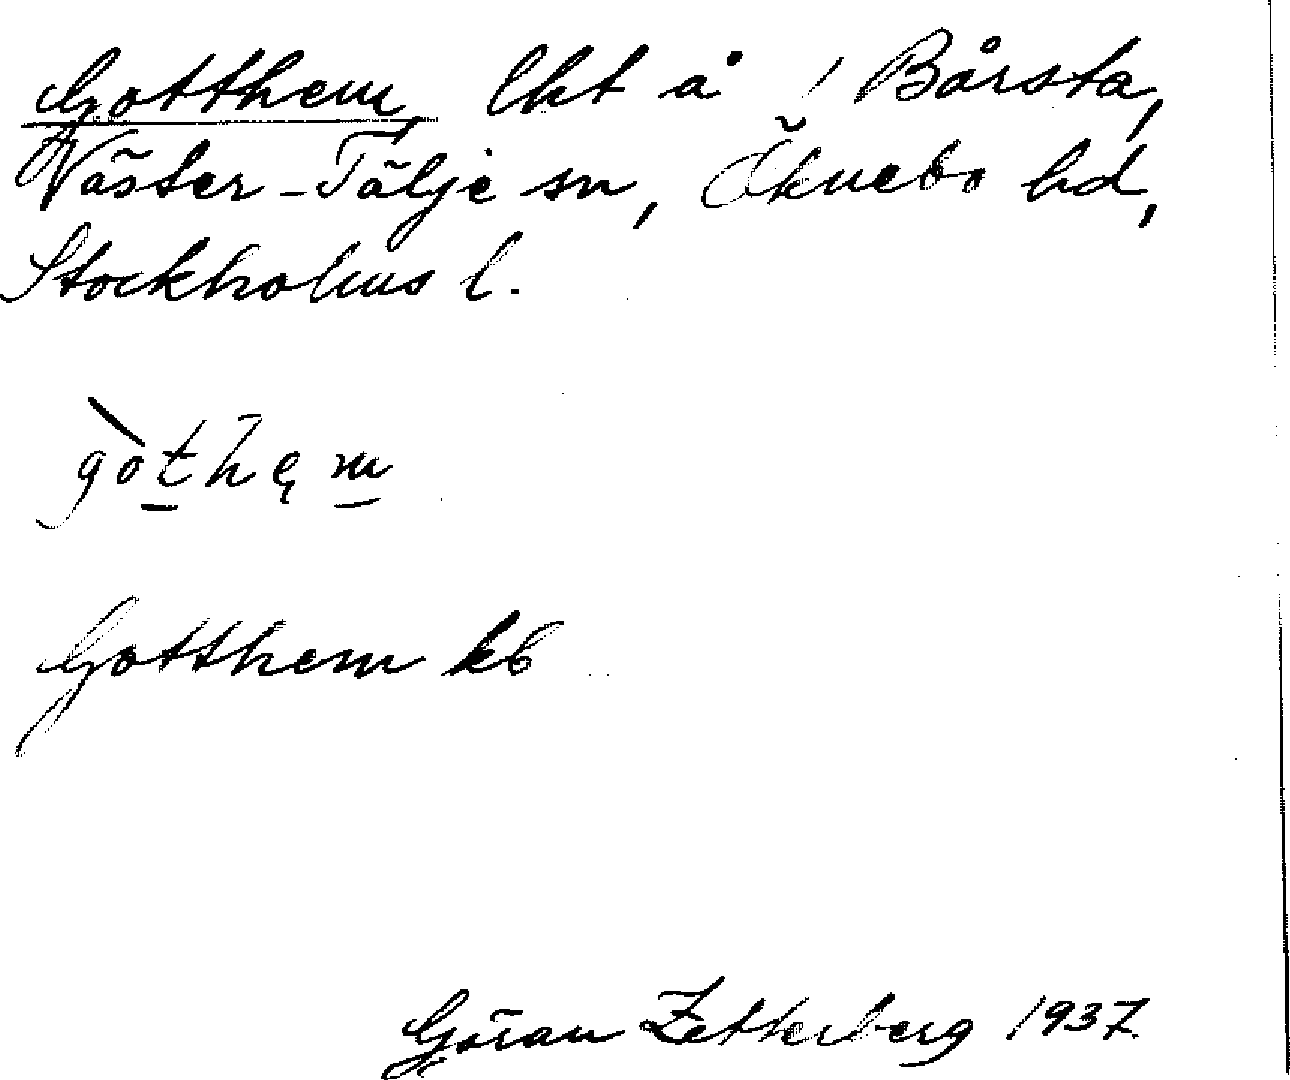 Gotthem, lht å 1 Bårsta,
Väster-Tälje sn, Öknebo hd,
Stockholms l.
gòthęm
Gotthem kb
Göran Zetterberg 1937.